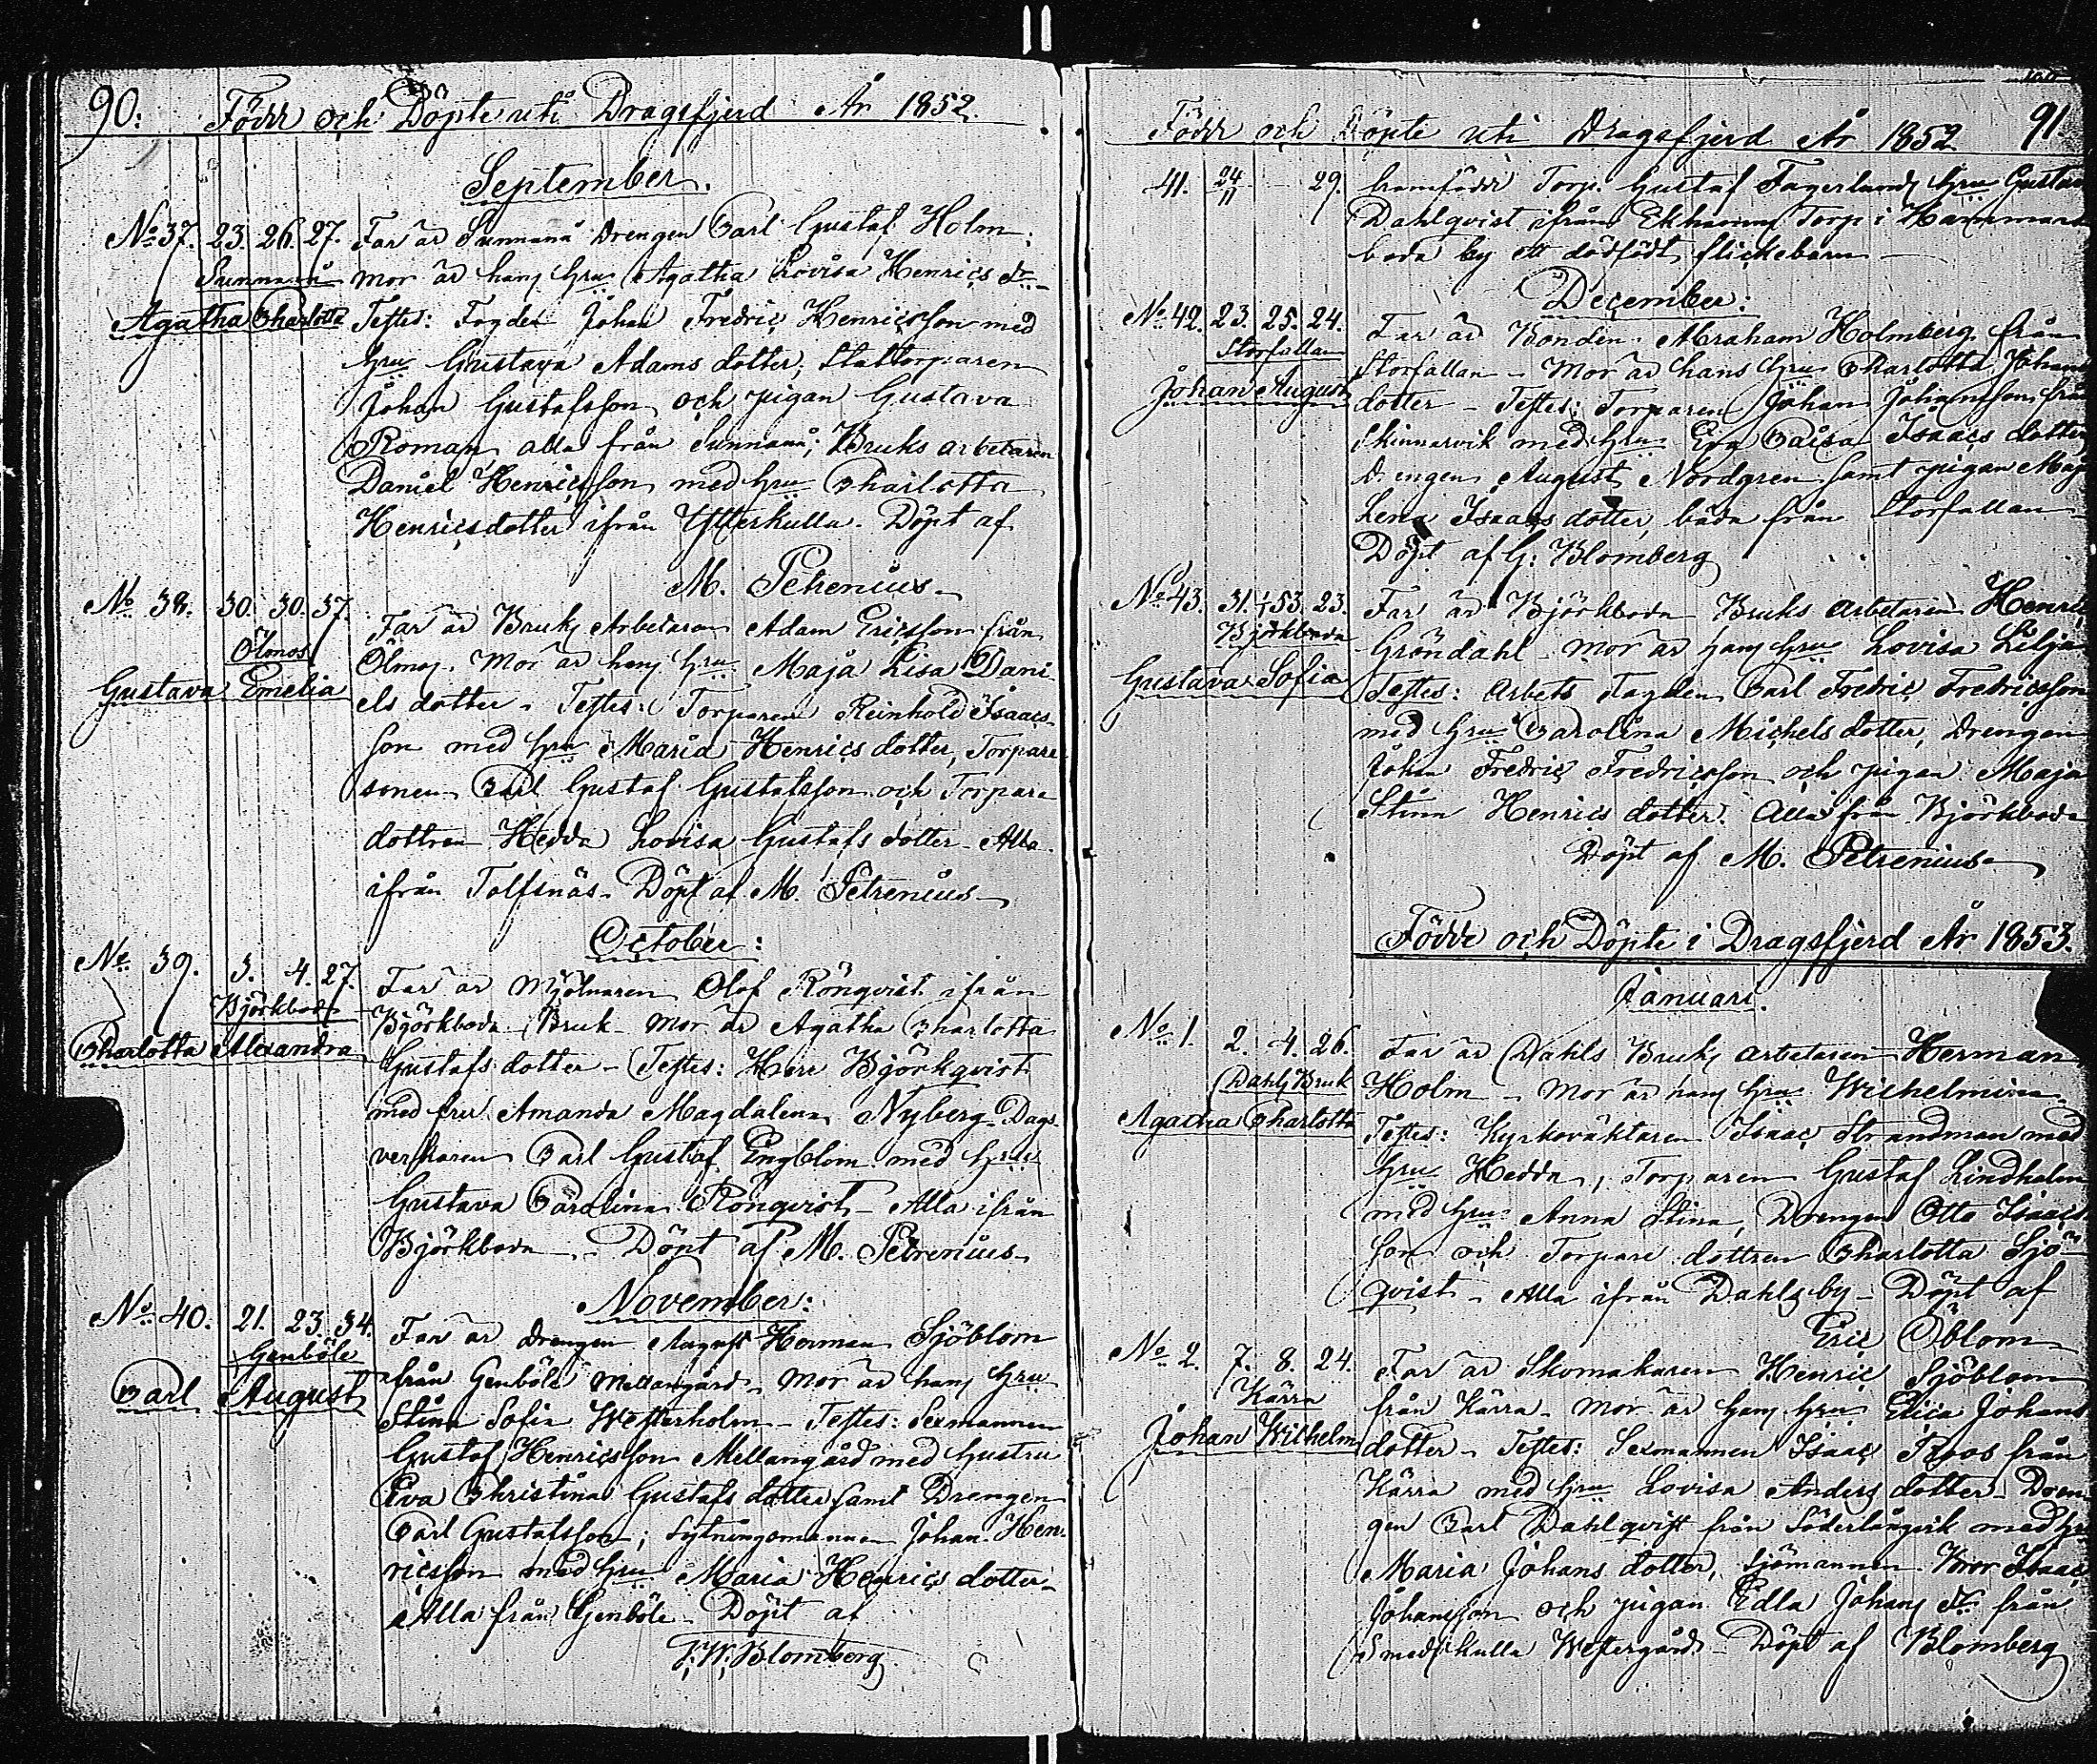 90. Födde och Döpte uti Dragsfjerd År 1852.
September.
No 37. 23. 26. 27. Far är Sunnanå Drengen Carl Gustaf Holm.
Sunnanå mor är hans hru Agatha Lovisa Henrics dr
Agatha Charlotta Testes: Fogden Johan Fredric Henricsson med
hru Gustava Adams dotter, Stattorparen
Johan Gustafsson och pigan Gustava
Roman alla från Sunnanå; Bruks arbetaren
Daniel Henricsson med hru Charlotta
Henricsdotter ifrån Ytterkulla. Döpt af
M. Petrenius
No 38. 30. 30. 37. Far är Bruks Arbetaren Adam Ericsson från
Ölmos Ölmos. Mor är hans hru Maja Lisa Dani
Gustava Emelia els dotter. Testes: Torparen Reinhold Isaacs
son med hru Maria Henrics dotter, Torpare
sonen Carl Gustaf Gustafsson och Torpare
dottren Hedda Lovisa Gustafs dotter Alla
ifrån Tolfsnäs. Döpt af M. Petrenius
October:
No 39. 3. 4. 27. Far är Mjölnaren Olof Rönqvist ifrån
Björkboda Björkboda Bruk mor är Agatha Charlotta
Charlotta Alexandra Gustafs dotter Testes: Herr Björkqvist
med fru Amanda Magdalena Nyberg Dags
verkaren Carl Gustaf Engblom med hru
Gustava Carolina Rönqvist Alla ifrån
Björkboda Döpt af M. Petrenius
November:
No 40. 21. 23. 34. Far är drengen August Herman Sjöblom
Genböle från Genböle Mellangård mor är hans hru
Carl August Stina Sofia Westerholm Testes: Sexmannen
Gustaf Henricsson Mellangård med hustru
Eva Christina Gustafs dotter samt Drengen
Carl Gustafsson; Sytningsmannen Johan Hen
ricsson med hru Maria Henrics dotter
Alla från Genböle Döpt af
Blomberg
Födde och Döpte uti Dragsfjerd År 1852 91
41. 24/11 29. framfödde Torp. Gustaf Fagerlunds hru Gustava
Dahlqvist ifrån Ekhamn Torp i Hammars
boda by ett dödfödt flickebarn
December:
No 42. 23. 25. 24. Far är Bonden Abraham Holmberg från
Storfallan Storfallan Mor är hans hru Charlotta Johans
Johan August dotter Testes: Torparen Johan Johansson från
Skinnarvik med hru Eva Caisa Isaacs dotter
Drengen August Nordgren samt pigan Maja
Lena Isaacs dotter, båda från Storfallan
Döpt af G: Blomberg
No 43. 31. 1/1 53. 23. Far är Björkboda Bruks arbetaren Henric
Björkboda Gröndahl mor är hans hru Lovisa Lilja
Gustava Sofia Testes: Arbets Fogden Carl Fredric Fredricsson
med hru Carolina Michels dotter, Drengen
Johan Fredric Fredricsson och pigan Maja
Stina Henrics dotter. Alla från Björkboda
Döpt af M. Petrenius
Födde och Döpte i Dragsfjerd År 1853.
Januari.
No 1. 2. 4. 26. Far är Dahls Bruks arbetaren Herman
Dahls Bruk Holm Mor är hans hru Wilhelmina
Agatha Charlotta Testes: Kyrkoväktaren Isaac Strandman med
hru Hedda, Torparen Gustaf Lindholm
med hru Anna Stina, Drengen Otto Isaacs
son och Torpare dottren Charlotta Sjö
qvist Alla ifrån Dahls by Döpt af
Eric Öblom
No 2. 7. 8. 24. Far är Skomakaren Henric Sjöblom
Kärra från Kärra mor är hans hru Elica Johans
Johan Wilhelm dotter Testes: Sexmannen Isaac Roos från
Kärra med hru Lovisa Anders dotter Dren
gen Carl Dahlqvist från Söderlångvik med hru
Maria Johans dotter, Sjömannen Isaac
Johansson och pigan Edla Johans dr från
Smedskulla Westergård Döpt af Blomberg